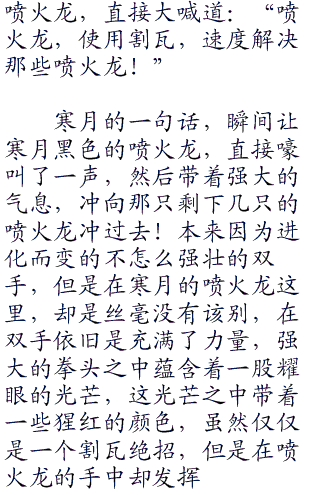 喷火龙，直接大喊道：“喷
火龙，使用割瓦，速度解决
那些喷火龙！”
寒月的一句话，瞬间让
寒月黑色的喷火龙，直接嚎
叫了一声，然后带着强大的
气息，冲向那只剩下几只的
喷火龙冲过去！本来因为进
化而变的不怎么强壮的双
手，但是在寒月的喷火龙这
里，却是丝毫没有该别，在
双手依旧是充满了力量，强
大的拳头之中蕴含着一股耀
眼的光芒，这光芒之中带着
一些猩红的颜色，虽然仅仅
是一个割瓦绝招，但是在喷
火龙的手中却发挥